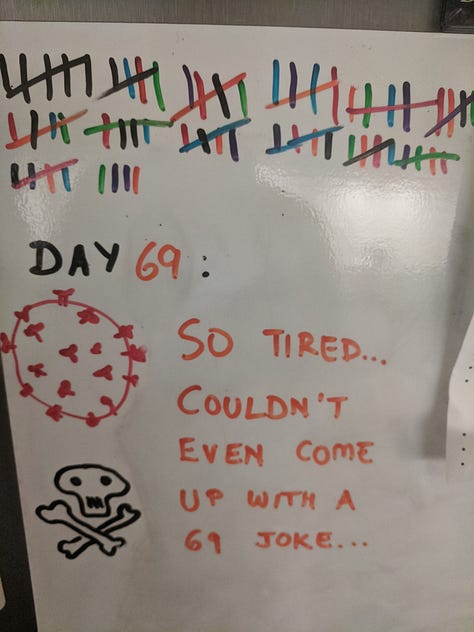 DAY 69:
SO TIRED...
COULDN'T
EVEN COME
UP WITH A
69 JOKE...